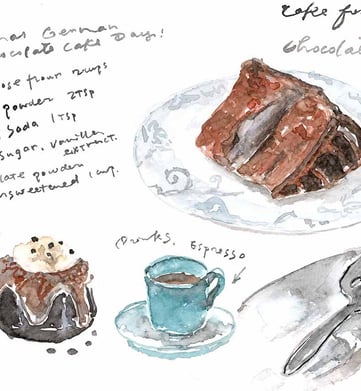 German
Chocolate Cake Day!
flour 2 cups
powder 2 TSP
Soda 1 TSP
Sugar, Vanilla
extract.
powder
unsweetened 1 cup.
cake
chocolat
Drinks, Espresso